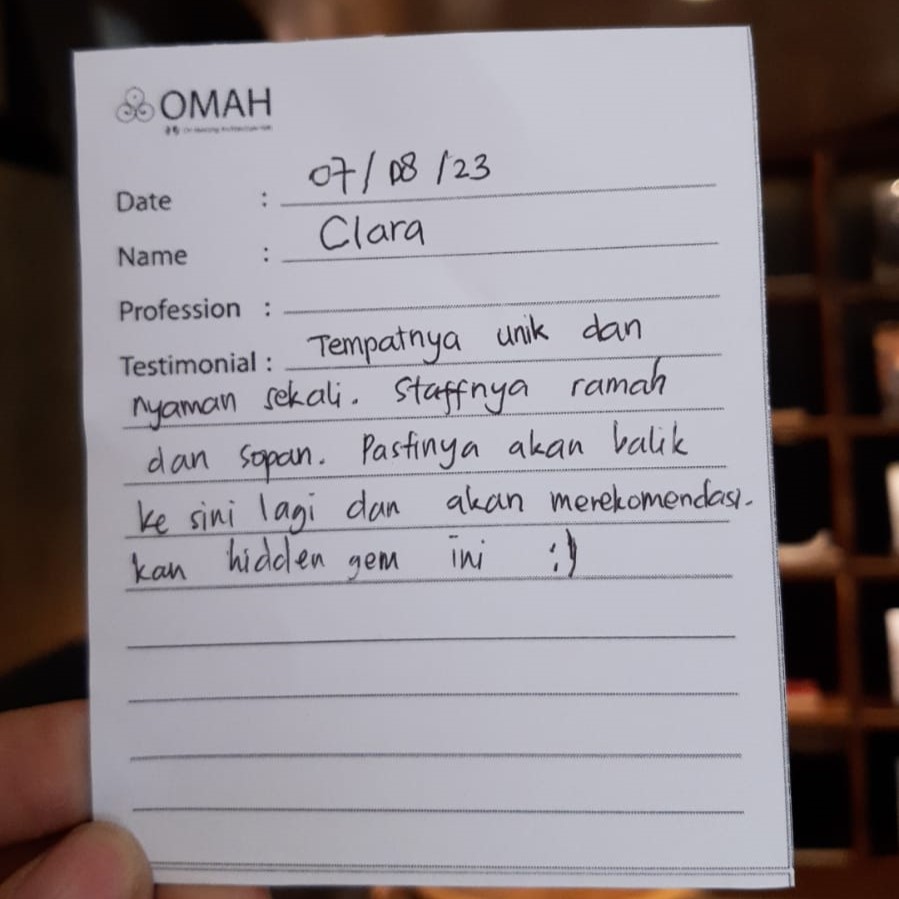 OMAH
Date : 07/08/23
Name : Clara
Profession :
Testimonial : Tempatnya unik dan
nyaman sekali. Staffnya ramah
dan sopan. Pastinya akan balik
ke sini lagi dan akan merekomendasi-
kan hidden gem ini :)